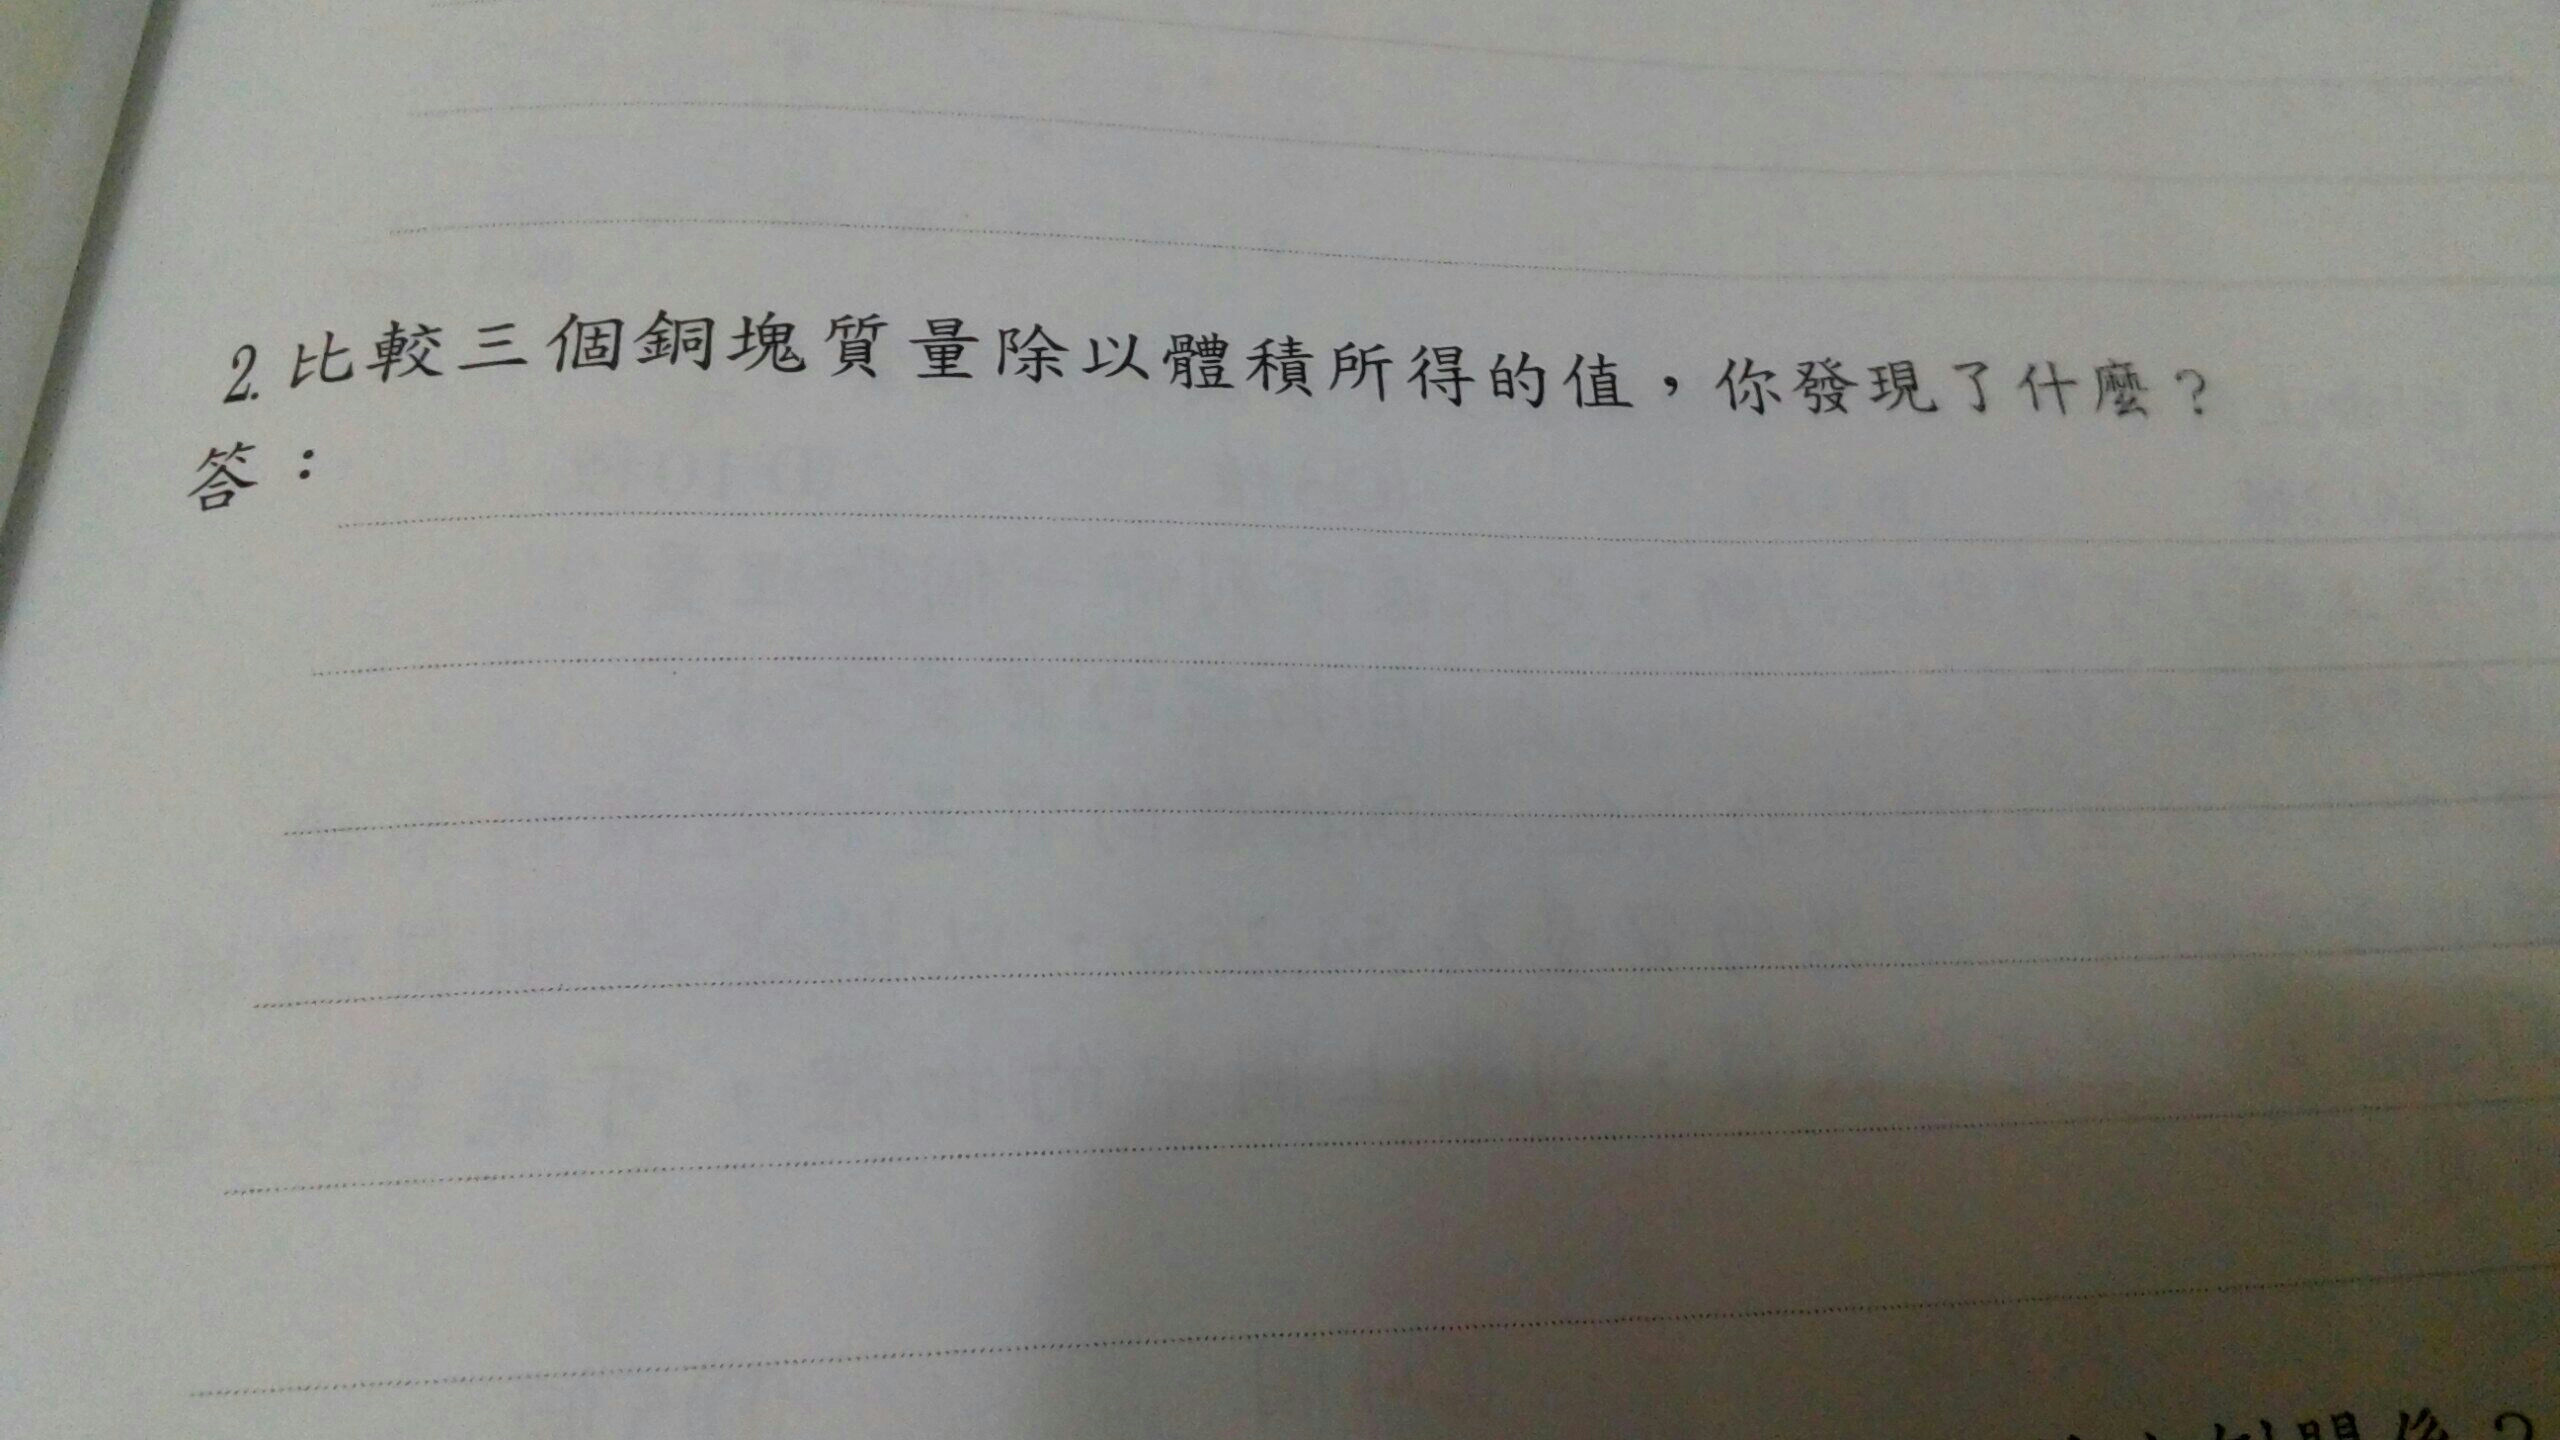 2.比較三個銅塊質量除以體積所得的值，你發現了什麼？
答：
例關係？